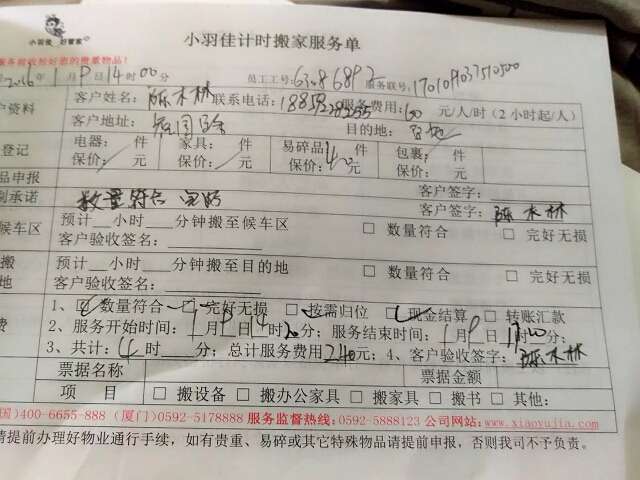 小羽佳 好管家
小羽佳计时搬家服务单
服务前收拾好您的贵重物品！
2016年1月9日14时00分 员工工号：6386892 服务联号：
户资料 客户姓名：陈木林 联系电话： 服务费用：60元/人/时（2小时起/人）
客户地址： 目的地：
登记 电器： 件 家具： 件 易碎品 件 包裹： 件
保价： 元 保价： 元 保价： 元 保价： 元
品申报 客户签字：
制承诺 数量符合 完好 客户签字：陈木林
候车区 预计__小时___分钟搬至候车区 □ 数量符合 □ 完好无损
客户验收签名：
搬 预计__小时___分钟搬至目的地 □ 数量符合 □ 完好无损
地 客户验收签名：
1、☑数量符合 □ 完好无损 □ 按需归位 ☑现金结算 □ 转账汇款
2、服务开始时间：1月9日14时20分；服务结束时间：1月9日 时 分；
费 3、共计：4时___分；总计服务费用240元；4、客户验收签字：陈木林
票据名称 票据金额
项 目 □ 搬设备 □ 搬办公家具 □ 搬家具 □ 搬书 □ 其他：
国)400-6655-888 (厦门)0592-5178888 服务监督热线:0592-5888123 公司网站:www.xiaoyujia.com
请提前办理好物业通行手续，如有贵重、易碎或其它特殊物品请提前申报，否则我司不予负责。